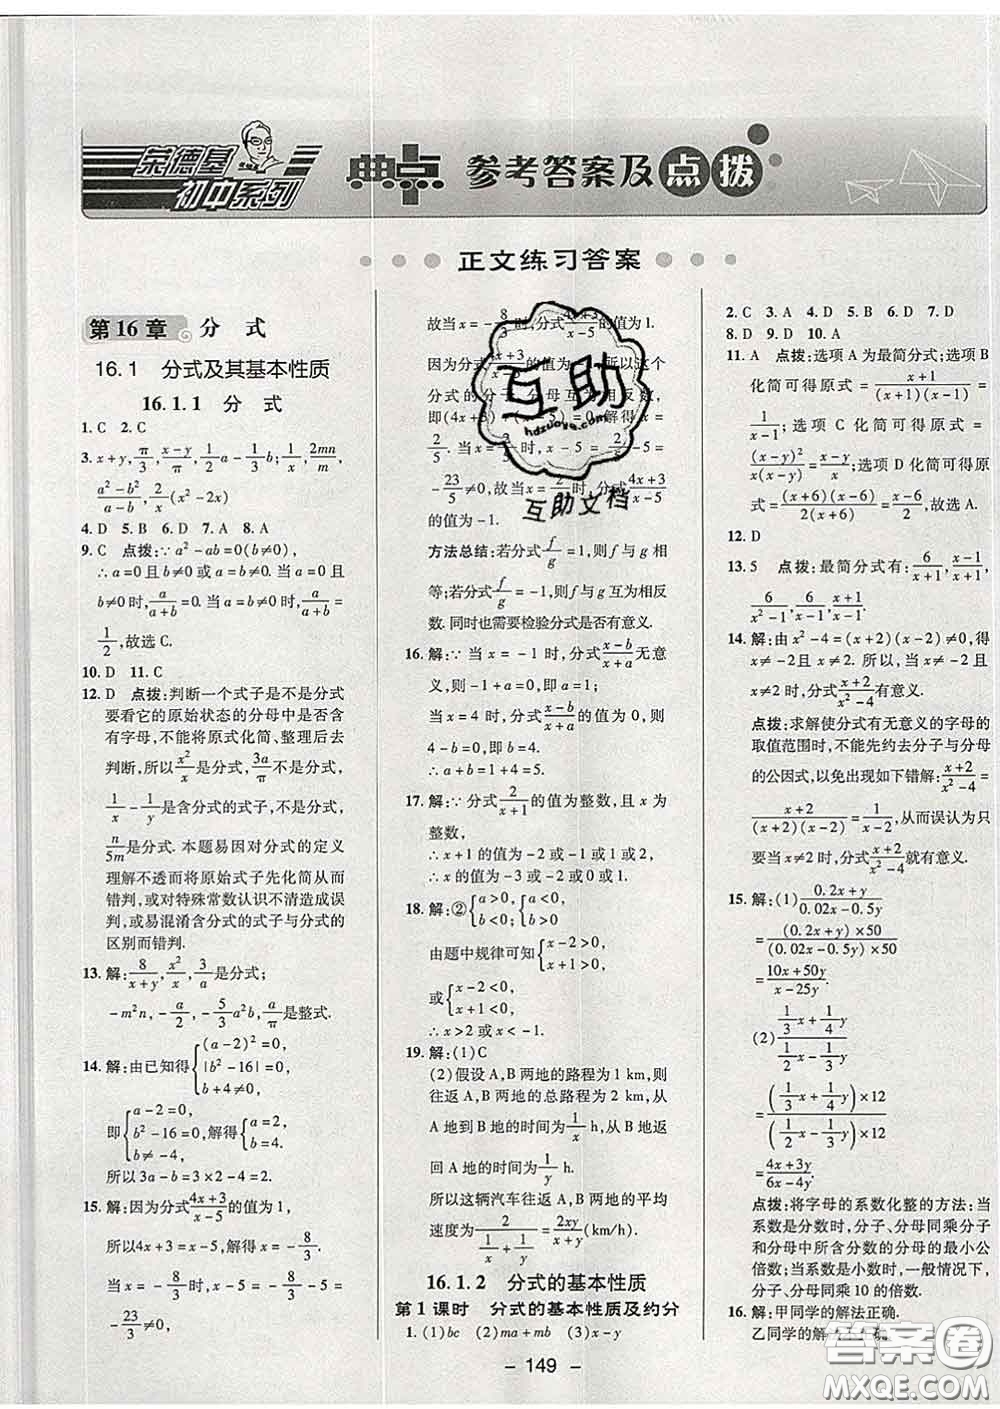 荣德基
初中系列
典中点 参考答案及点拨
正文练习答案
第16章 分 式
16.1 分式及其基本性质
16.1.1 分 式
1.C 2.C
3.x+y,π/3,(x-y)/π,1/2a-1/3b;1/x,2mn/m,
(a²-b²)/(a-b),2/x(x²-2x)
4.D 5.B 6.D 7.D 8.A
9.C 点拨:∵a²-ab=0(b≠0),
∴a=0且b≠0或a=b≠0.当a=0且
b≠0时,a/(a+b)=0.当a=b≠0时,a/(a+b)=
1/2,故选C.
10.D 11.C
12.D 点拨:判断一个式子是不是分式
要看它的原始状态的分母中是否含
有字母,不能将原式化简、整理后再去
判断,所以x²/x是分式,3a/π不是分式,
1/x-1/y是含分式的式子,不是分式,
n/5m是分式.本题易因对分式的定义
理解不透而将原始式子先化简从而
错判,或对特殊常数认识不清造成误
判,或易混淆含分式的式子与分式的
区别而错判.
13.解:8/(x+y),x²/x,3/a是分式;
-m²n,-a/2,-5/3a²,a/π是整式.
14.解:由已知得{(a-2)²=0,
|b²-16|=0,
b+4≠0,
即{a-2=0,
b²-16=0,解得{a=2,
b=4.
b≠-4,
所以3a-b=3×2-4=2.
15.解:因为分式(4x+3)/(x-5)的值为1,
所以4x+3=x-5,解得x=-8/3.
当x=-8/3时,x-5=-8/3-5=
-23/3≠0,
故当x=-8/3时,分式(4x+3)/(x-5)的值为1.
因为分式(4x+3)/(x-5)的值为-1,所以这个
分式的分子、分母互为相反数,
即(4x+3)+(x-5)=0,解得x=
2/5.当x=2/5时,x-5=2/5-5=
-23/5≠0,故当x=2/5时,分式(4x+3)/(x-5)
的值为-1.
方法总结:若分式f/g=1,则f与g相
等;若分式f/g=-1,则f与g互为相反
数.同时也需要检验分式是否有意义.
16.解:∵当x=-1时,分式(x-b)/(x+a)无意
义,则-1+a=0,∴a=1;
当x=4时,分式(x-b)/(x+a)的值为0,则
4-b=0,即b=4.
∴a+b=1+4=5.
17.解:∵分式2/(x+1)的值为整数,且x为
整数,
∴x+1的值为-2或-1或1或2.
∴x=-3或-2或0或1.
18.解:②{a>0,
b<0;{a<0,
b>0
由题中规律可知{x-2>0,
x+1>0,
或{x-2<0,
x+1<0,
∴x>2或x<-1.
19.解:(1)C
(2)假设A,B两地的路程为1 km,则
往返A,B两地的总路程为2 km,从
A地到B地的时间为1/x h,从B地
回A地的时间为1/y h.
所以这辆汽车往返A,B两地的平均
速度为2/(1/x+1/y)=2xy/(x+y)(km/h)
16.1.2 分式的基本性质
第1课时 分式的基本性质及约分
1.(1)bc (2)ma+mb (3)x-y
2.C 3.A 4.D 5.B 6.D 7.D
8.D 9.D 10.A
11.A 点拨:选项A为最简分式;选项B
化简可得原式=(x+1)/((x+1)(x-1))=
1/(x-1);选项C化简可得原式=
(x-y)²/(x(x-y))=(x-y)/x;选项D化简可得原
式=((x+6)(x-6))/(2(x+6))=(x-6)/2,故选A.
12.D
13.5 点拨:最简分式有:6/(x+1),(x-1)/(x+1),
6/(x²-1),6/(x-1),(x+1)/(x-1).
14.解:由x²-4=(x+2)(x-2)≠0,得
x≠-2且x≠2.所以,当x≠-2且
x≠2时,分式(x+2)/(x²-4)有意义.
点拨:求解使分式有无意义的字母的
取值范围时,不能先约去分子与分母
的公因式,以免出现如下错解:(x+2)/(x²-4)=
(x+2)/((x+2)(x-2))=1/(x-2),从而误认为只
要当x≠2时,分式(x+2)/(x²-4)就有意义.
15.解:(1)(0.2x+y)/(0.02x-0.5y)
=((0.2x+y)×50)/((0.02x-0.5y)×50)
=(10x+50y)/(x-25y)
(2)(1/3x+1/4y)/(1/2x-1/3y)
=((1/3x+1/4y)×12)/((1/2x-1/3y)×12)
=(4x+3y)/(6x-4y)
点拨:将字母的系数化整的方法:当
系数是分数时,分子、分母同乘分子
和分母中所含分数的分母的最小公
倍数;当系数是小数时,一般情况下,
分子、分母同乘10的倍数.
16.解:甲同学的解法正确.
乙同学的解
- 149 -
互助
hdzuoye.com
互助文档
答案圈
MXQE.COM